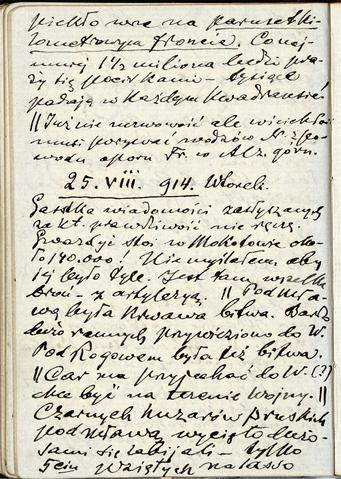 piekło wre na paruset ki-
lometrowym froncie. Conaj-
mniej 1½ miliona ludzi pra-
ży się pociskami – tysiące
padają w każdym kwadransie!
|| Już nie nerwowość ale wściekłość
musi porywać wodzów N. z po-
wodu oporu Fr. w Alz. górn.
25. VIII. 914. Wtorek.
Garstka wiadomości zasłyszanych
za kt. prawdziwość nie ręczę.
Gwardyi stoi w Mokotowie oko-
ło 140.000! Nie myślałem aby
jej było tyle. Jest tam wszelka
broń – z artyleryą. || Pod Mła-
wą była krwawa bitwa. Bardzo
dużo rannych przywieziono do W.
Pod Rogowem była też bitwa.
|| Car ma przyjechać do W. (?)
chce być na terenie wojny. ||
Czarnych huzarów pruskich
pod Mławą wycięto dużo –
sami się zabijali – tylko
5ciu wziętych na lasso